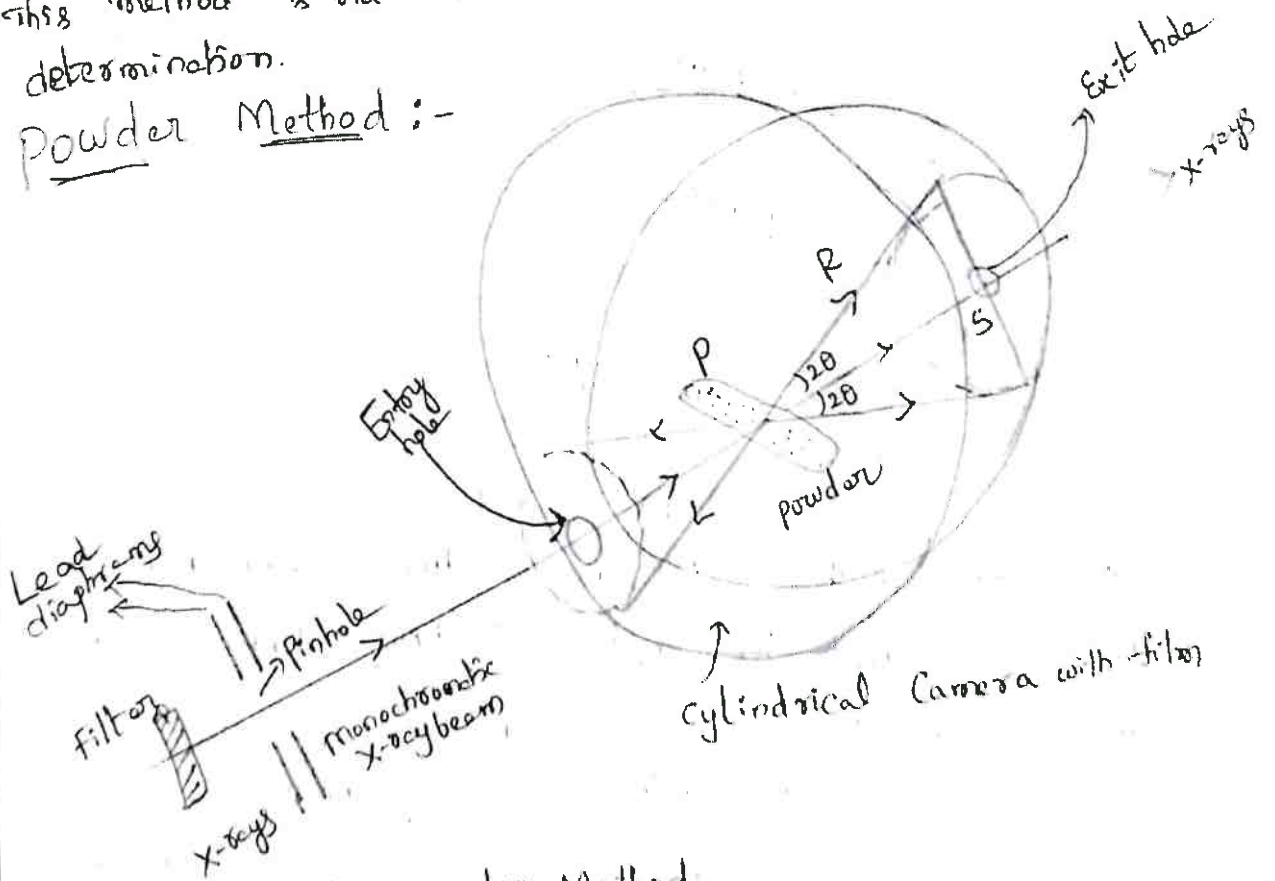 This method is
determination.
Powder Method :-
Exit hole
X-rays
R
S
P
2θ
2θ
Entry
hole
powder
Lead
diaphrams
Pinhole
Filter
monochromatic
X-ray beam
X-rays
Cylindrical Camera with film
Method